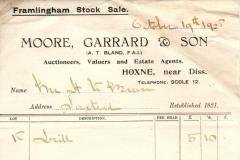 Framlingham Stock Sale.
October 19th 1925
MOORE, GARRARD & SON
(A. T. BLAND, F.A.I.)
Auctioneers, Valuers and Estate Agents,
HOXNE, near Diss.
TELEPHONE: SCOLE 12.
Address Established 1821.
LOT DESCRIPTION. PER HEAD £ s. d.
15 Drill 5 10